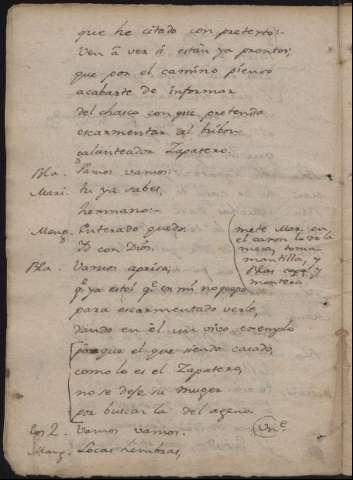 que he citado con pretexto:-
Ven a ver si están ya prontos,
que por el camino pienso
acabarte de informar
del chasco con que pretendo
escarmentar al bribon
galanteador Zapatero.
Bla. Vamos vamos:
Mari. tu ya sabes,
hermano:-
Mang. Enterado quedo.
Id con Dios.
mete Mar. en
el caxon lo de la
mesa, toma
mantilla, y
Blas capa y
montera.
Bla. Vamos aprisa,
qe. ya estoi qe. en mi no
para escarmentado verle,
dando en el un vivo exemplo
para que el que siendo casado,
como lo es el Zapatero,
no se dexe su muger
por buscar la del ageno.
Los 2. Vamos vamos.
Vne.
Mang. Locas hembras,